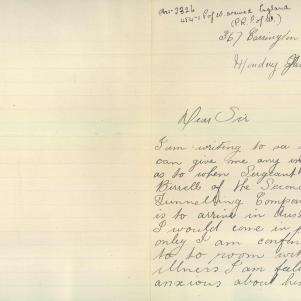 454-1 P of W. arrived England
(P.R. P. of W.)
367 Carrington
Monday
Dear Sir
I am writing to
can give me any
as to when Sergeant
Birrell of the Second
Tunnelling Compan
is to arrive in Aus
I would come in
only I am confin
to to room wit
illness I am
anxious about